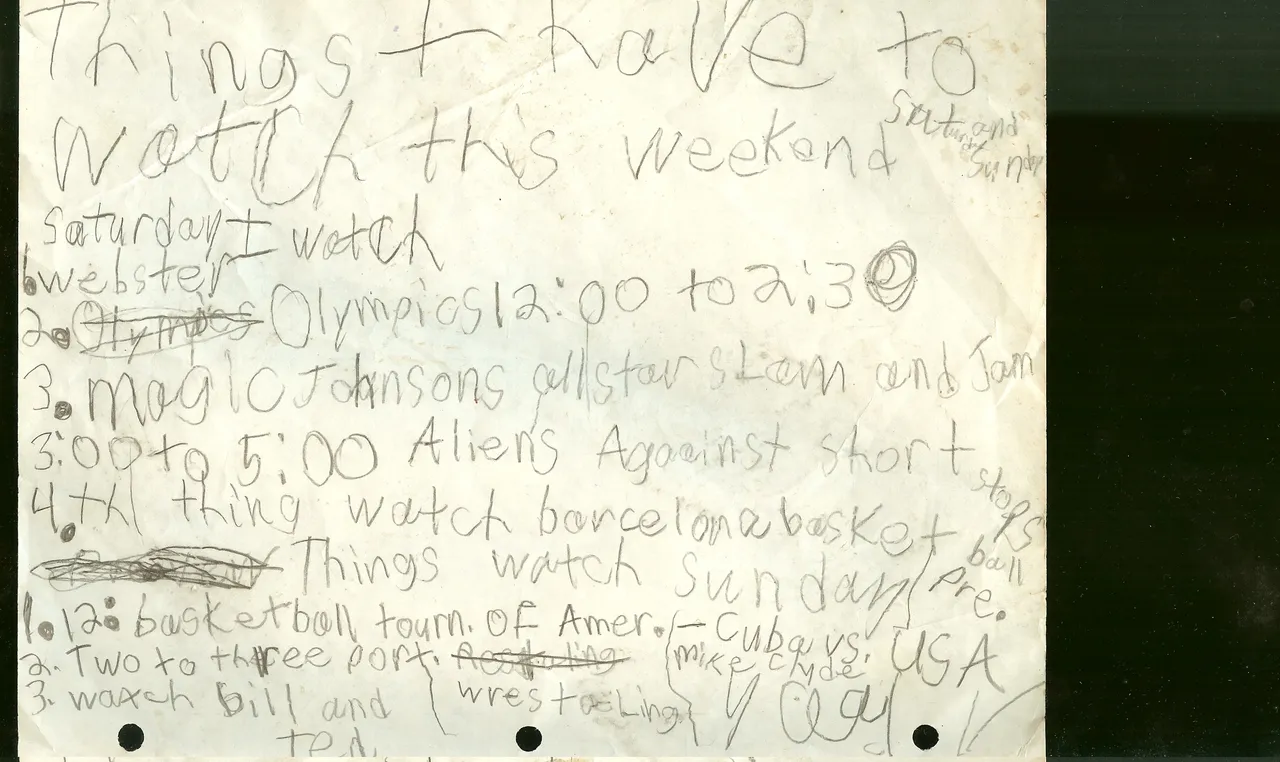 Things I have to
watch this weekend Saturday and Sunday
Saturday I watch
1. webster
2. Olympics Olympics 12:00 to 2:30
3. magic Johnsons allstar slam and Jam
3:00 to 5:00 Aliens Agaainst short stops
4.th thing watch barcelona basket ball pre.
Things watch Sunday
1. 12: basketball tourn. OF Amer. - Cuba vs. USA
2. Two to three port. wrestaeling mike clyde
3. waxch bill and
Ted.